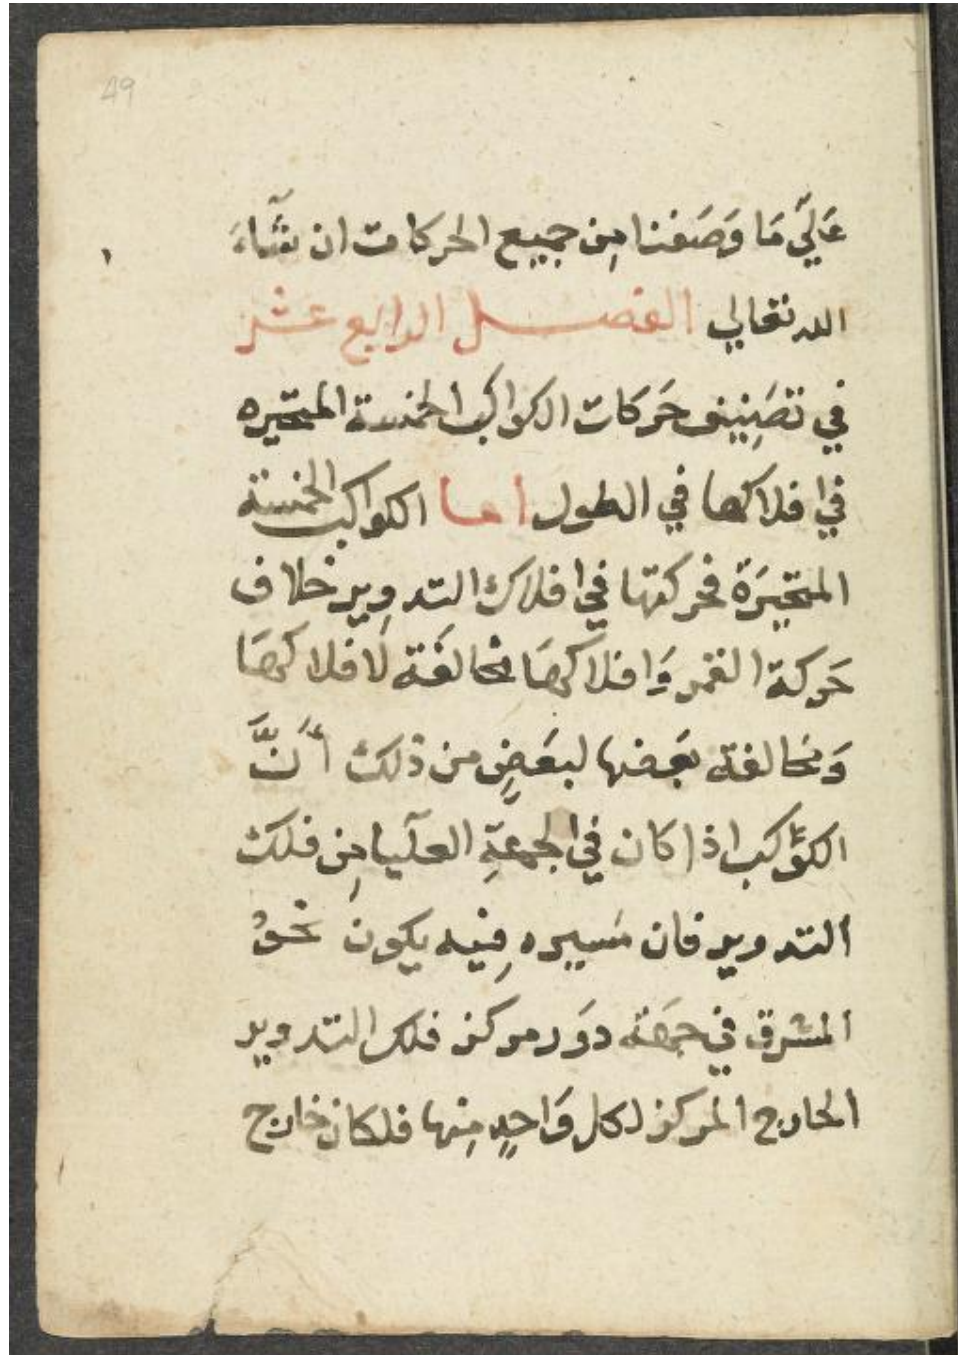 49
عَلَيَ مَا وَصَفنا مِن جميع الحركات ان شَآءَ
الله تعَالي الفصل الرابع عشر
في تصَنِيف حَرَكات الكواكب الخمسة المتحيره
في افلاكها في الطول اما الكواكب الخمسة
المتحيَرَة فحركتها في افلاك التدوِير خلاف
حَركة القمر وَافلاكهَا مخالفَة لَافلاكهَا
وَمخالفة بعَضها لبعَضٍ من ذلك أَنَّ
الكوَّاكب اذا كان في الجهةِ العلَيا مِن فلك
التدوير فان مَسيره فِيه يكون نحوُ
المشرق في جهَة دوَر مركز فلك التدوير
الخارج المركز لكل وَاحدٍ مِنها فلكان خارج